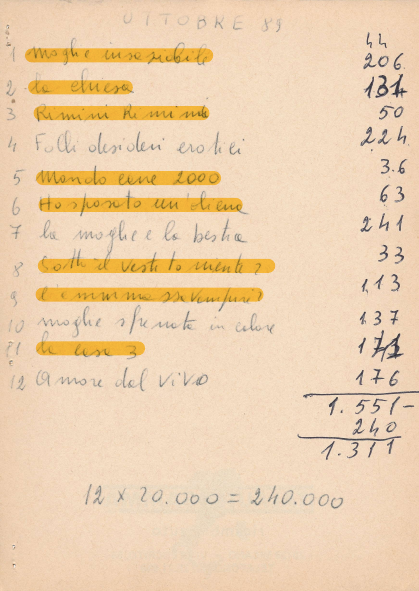 OTTOBRE 89
44
1 moglie insaziabile 206
2 la chiesa 131
3 Rimini Rimini 50
4 Folli desideri erotici 224
5 Mondo cane 2000 3.6
6 Ho sposato un'aliena 63
7 la moglie e la bestia 241
8 Sotto il vestito niente 2 33
9 113
10 moglie sfrenata in calore 137
11 la casa 3
12 Amore dal vivo 176
1.551-
240
1.311
12 x 20.000 = 240.000